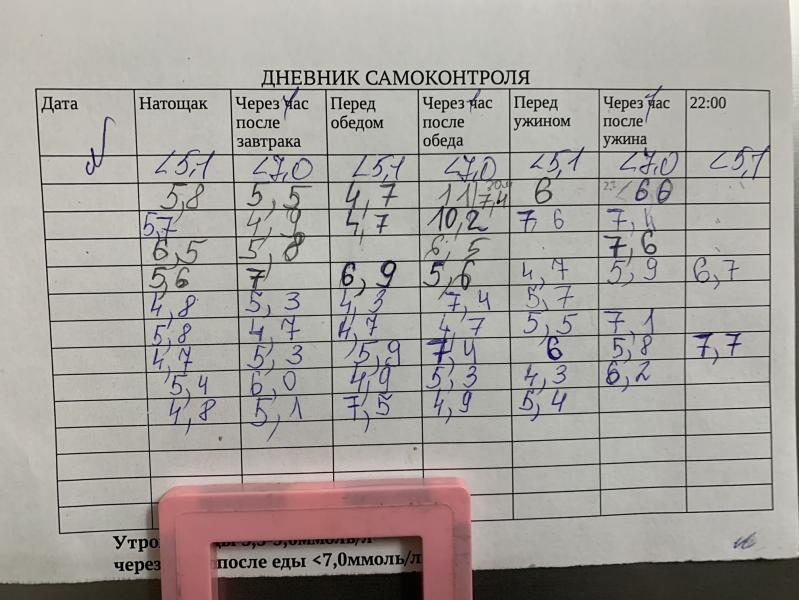 ДНЕВНИК САМОКОНТРОЛЯ
Дата Натощак Через 1 час после завтрака Перед обедом Через 1 час после обеда Перед ужином Через 1 час после ужина 22:00
N <5,1 <7,0 <5,1 <7,0 <5,1 <7,0 <5,1
5,8 5,5 4,7 11/7,4 6 <6 6
5,7 4,9 4,7 10,2 7,6 7,4
6,5 5,8 6,5 7,6
5,6 7 6,9 5,6 4,7 5,9 6,7
4,8 5,3 4,3 7,4 5,7
5,8 4,7 4,7 4,7 5,5 7,1
4,7 5,3 5,9 7,4 6 5,8 7,7
5,4 6,0 4,9 5,3 4,3 6,2
4,8 5,1 7,5 4,9 5,4
Утро ммоль/л
через после еды <7,0ммоль/л